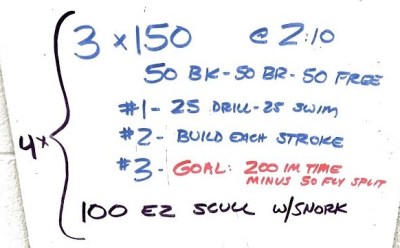 3 x 150 @ 2:10
50 BK - 50 BR - 50 FREE
#1 - 25 DRILL - 25 SWIM
4x #2 - BUILD EACH STROKE
#3 - GOAL: 200 IM TIME
MINUS 50 FLY SPLIT
100 EZ SCULL W/SNORK